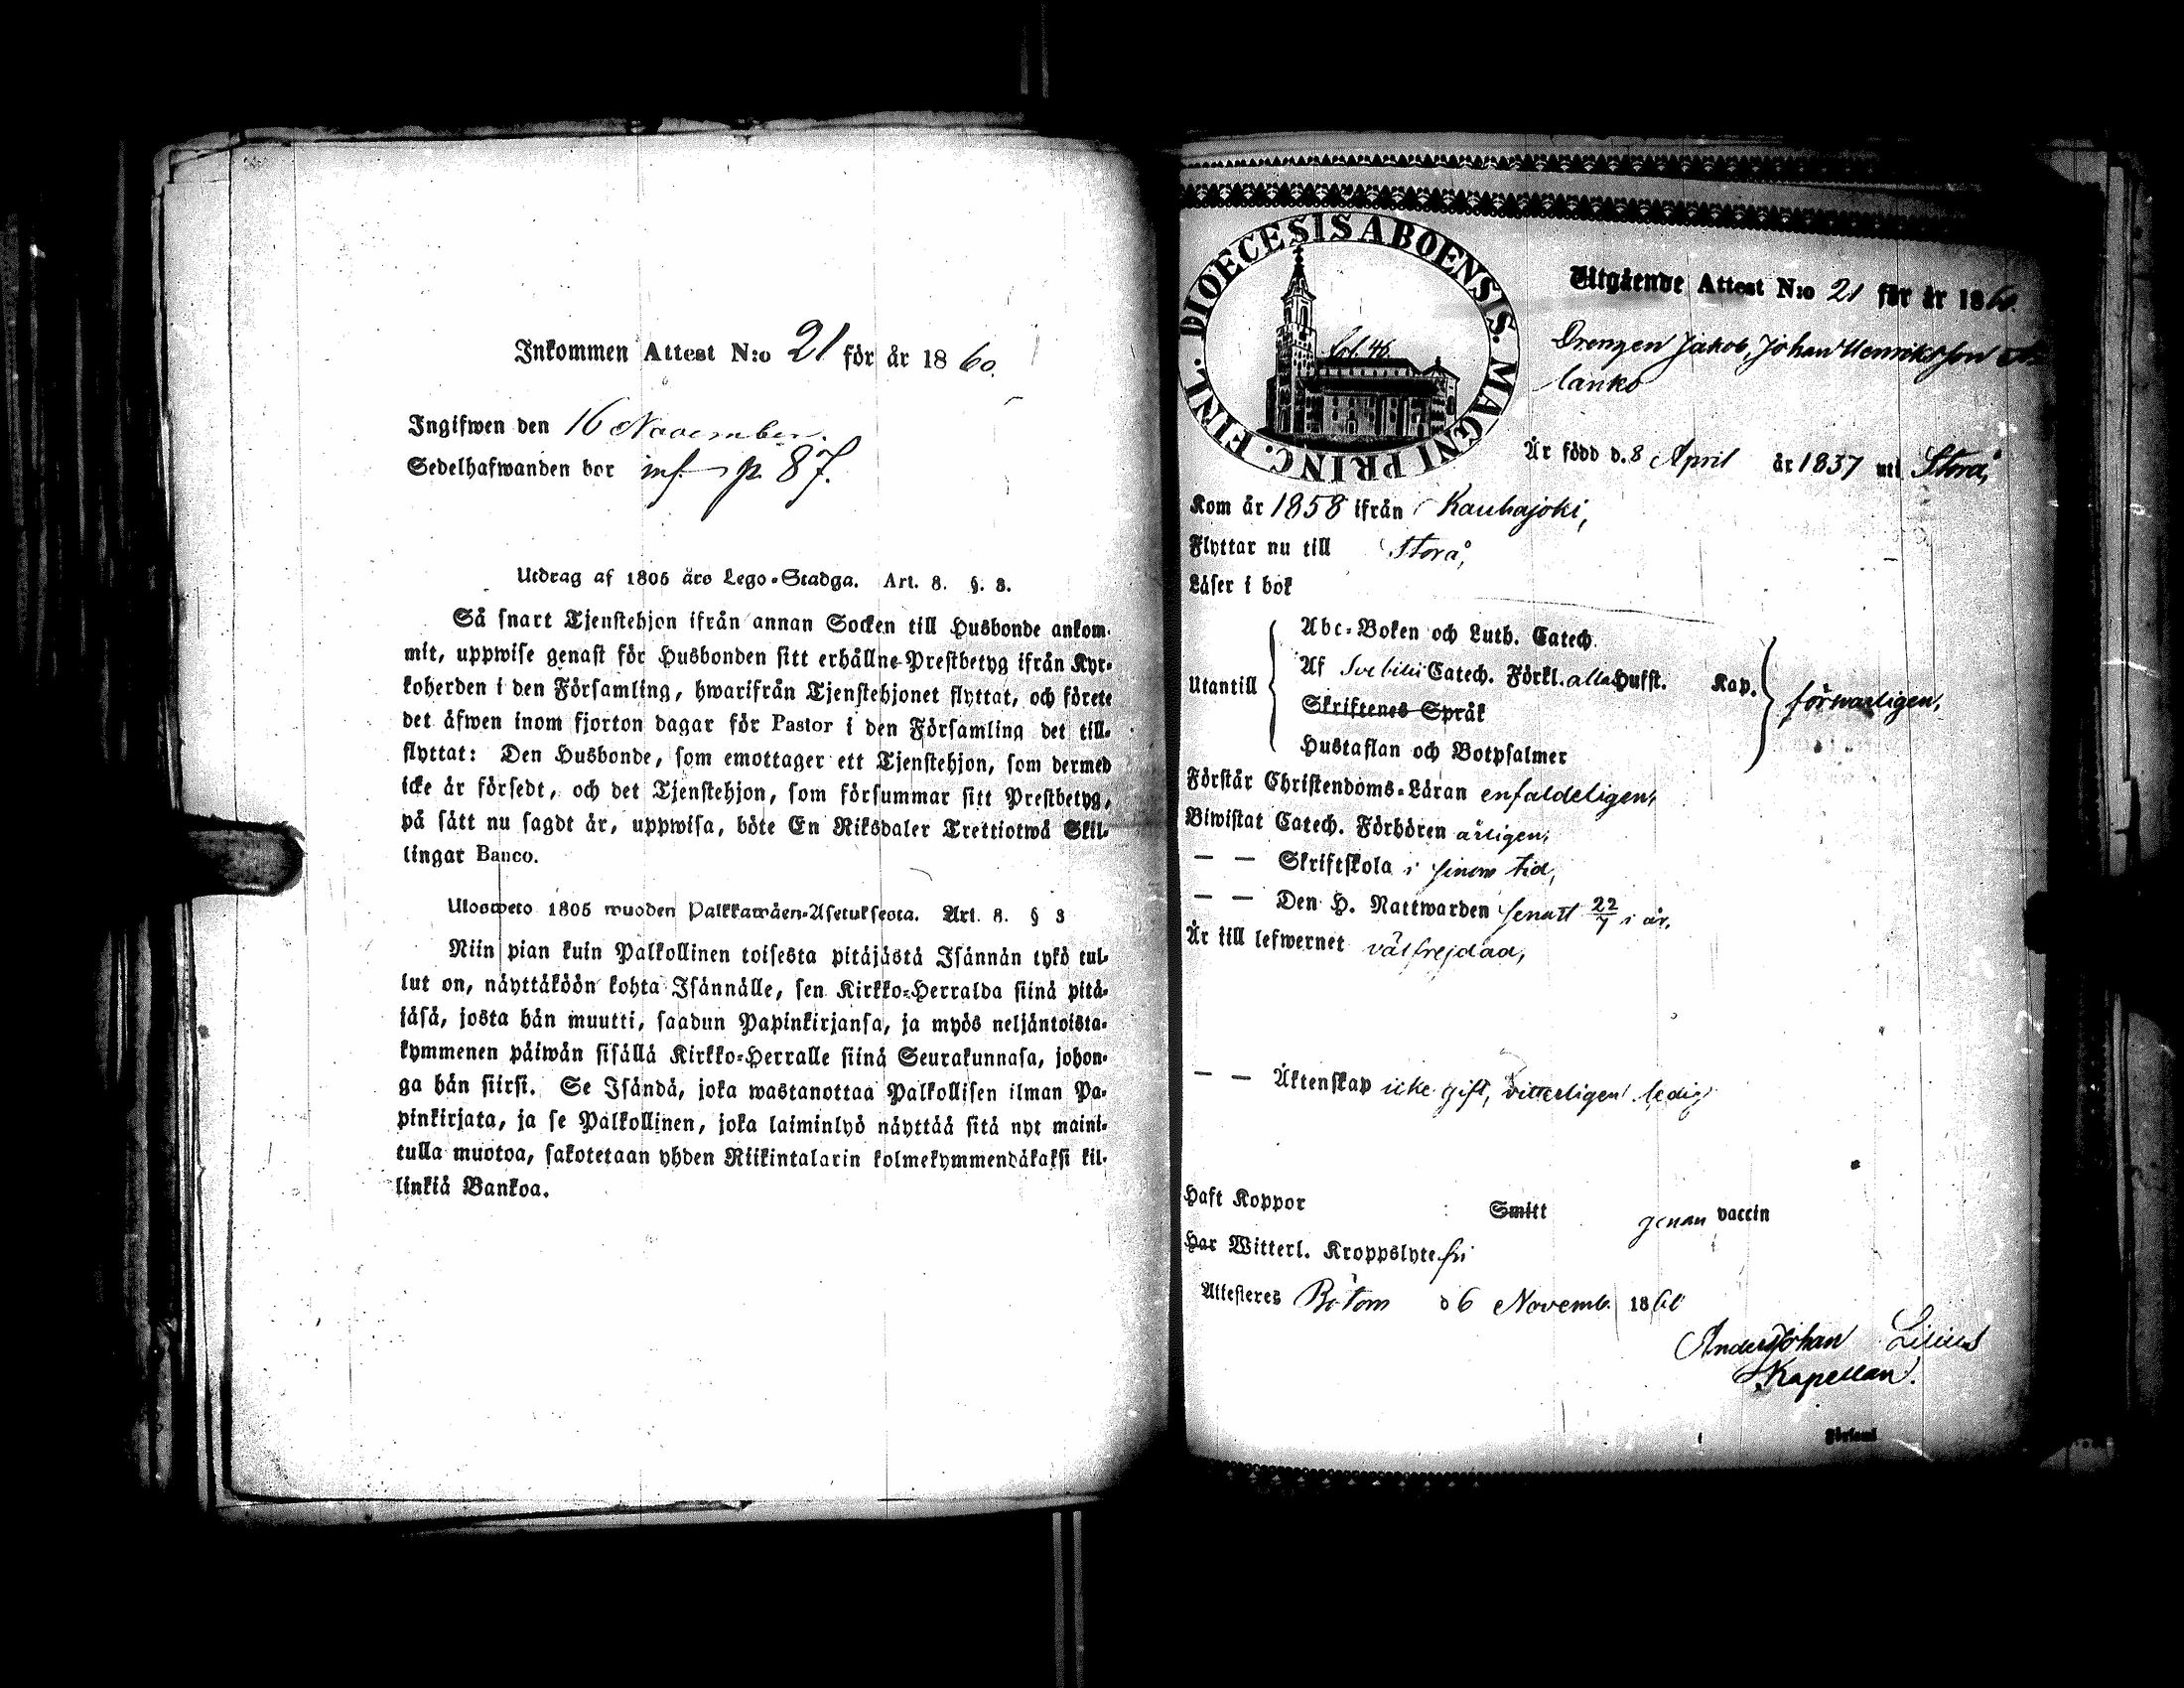 Inkommen Attest N:o 21 för år 1860.
Ingifwen den 16 November.
Sedelhafwanden bor inf. p. 87.
Utdrag af 1805 års Lego-Stadga. Art. 8. §. 3.
Så snart Tjenstehjon ifrån annan Socken till Husbonde ankom-
mit, uppwise genast för Husbonden sitt erhållne Prestbetyg ifrån Kyr-
koherden i den Församling, hwarifrån Tjenstehjonet flyttat, och förete
det äfwen inom fjorton dagar för Pastor i den Församling det till-
flyttat: Den Husbonde, som emottager ett Tjenstehjon, som dermed
icke är försedt, och det Tjenstehjon, som försummar sitt Prestbetyg,
på sätt nu sagdt är, uppwisa, böte En Riksdaler Trettiotwå Skil-
lingar Banco.
Ulosweto 1805 wuoden Palkkawäen-Asetuksesta. Art. 8. § 3
Niin pian kuin Palkollinen toisesta pitäjästä Isännän tykö tul-
lut on, näyttäköön kohta Isännälle, sen Kirkko-Herralda siinä pitä-
jäsä, josta hän muutti, saadun Papinkirjansa, ja myös neljäntoista-
kymmenen päiwän sisällä Kirkko-Herralle siinä Seurakunnasa, johon-
ga hän siirsi. Se Isändä, joka wastanottaa Palkollisen ilman Pa-
pinkirjata, ja se Palkollinen, joka laiminlyö näyttää sitä nyt maini-
tulla muotoa, sakotetaan yhden Riikintalarin kolmekymmendäkaksi kil-
linkiä Bankoa.
DIOECESIS ABOENSIS. MAGNI PRINC. FINL.
Fol. 46
Utgående Attest N:o 21 för år 1860.
Drengen Jakob Johan Henriksson
lanko
Är född d. 8 April år 1837 uti Storå,
Kom år 1858 ifrån Kauhajoki,
Flyttar nu till Storå,
Läser i bok
Abc-Boken och Luth. Catech.
Utantill Af Svebilii Catech. Förkl. alla Hufst. Kap. försvarligen,
Skriftenes Språk
Hustaflan och Botpsalmer
Förstår Christendoms-Läran enfaldeligen,
Biwistat Catech. Förhören årligen,
— — Skriftskola i sinom tid,
— — Den H. Nattwarden senast 22/7 i år,
Är till lefwernet välfrejdad,
— — Äktenskap icke gift, vitterligen ledig
Haft Koppor Smitt genom vaccin
Har Witterl. Kroppslyte fri
Attesteres Bötom d 6 Novemb. 1860
Anders Johan Lilius
Kapellan.